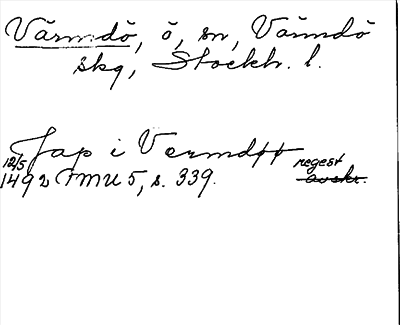 Värmdö, ö, sn, Värmdö
skg, Stockh. l.
Jap i Vermdøø
12/5 1492 FMU 5, s. 339. regest avskr.